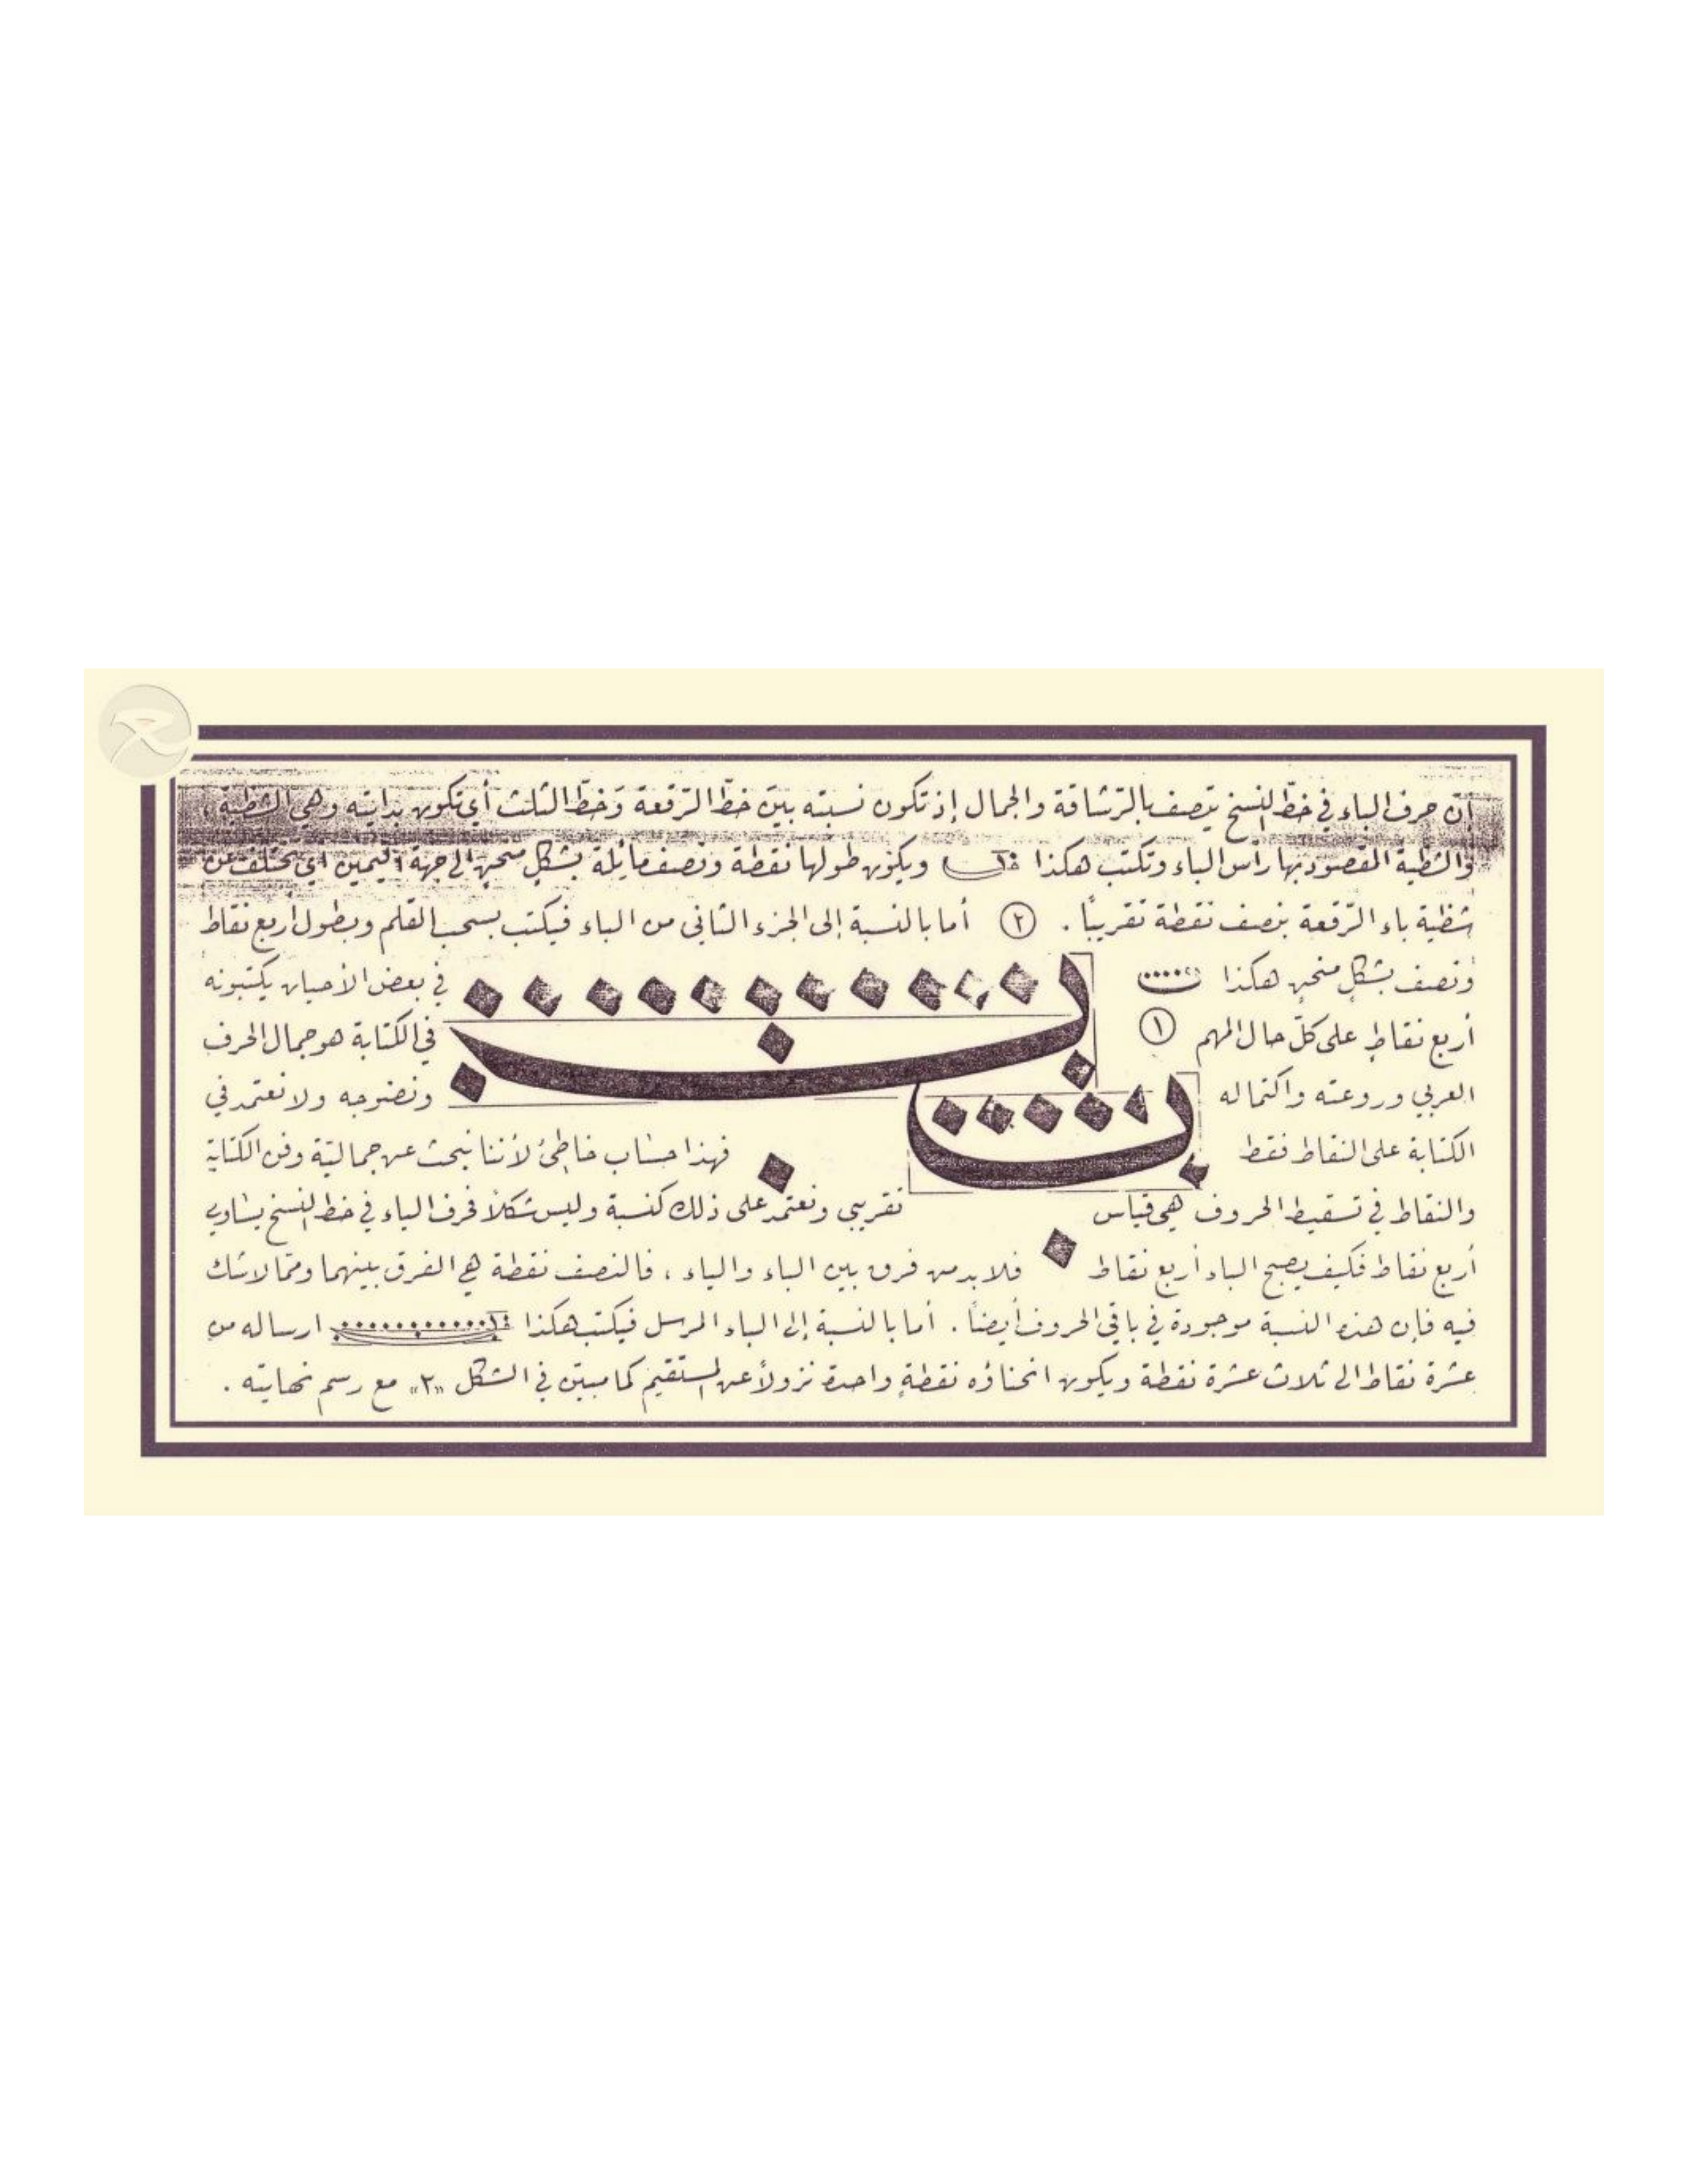 أن حرف الباء في خطّ النسخ يتصف بالرّشاقة والجمال إذ تكون نسبته بين خطّ الرّقعة وَخطّ الثلث أي تكون بدايته وهي الشظية،
وَالشظية المقصود بها رأس الباء وتكتب هكذا ويكون طولها نقطة ونصف مائلة بشكلٍ منحنٍ إلى جهة اليمين أي تختلف عن
شظية باء الرّقعة بنصف نقطة تقريباً . ٢ أما بالنسبة إلى الجزء الثاني من الباء فيكتب بسحب القلم وبطول أربع نقاط
وَنصف بشكلٍ منحنٍ هكذا في بعض الأحيان يكتبونه
أربع نقاطٍ على كلّ حال المهم ١ في الكتابة هو جمال الحرف
العربي وروعته واكتماله ونضوجه ولا نعتمد في
الكتابة على النقاط فقط فهذا حساب خاطئ لأننا نبحث عن جماليّة وفن الكتابة
والنقاط في تسقيط الحروف هي قياس تقريبي ونعتمد على ذلك كنسبة وليس شكلاً فحرف الياء في خط النسخ يساوي
أربع نقاط فكيف يصبح الباء أربع نقاط فلا بد من فرق بين الباء والياء ، فالنصف نقطة هي الفرق بينهما وممّا لا شك
فيه فإن هذه النسبة موجودة في باقي الحروف أيضاً . أما بالنسبة إلى الباء المرسل فيكتب هكذا ارساله من
عشرة نقاط الى ثلاث عشرة نقطة ويكون انحناؤه نقطةٍ واحدة نزولاً عن المستقيم كما مبيّن في الشكل «٢» مع رسم نهايته .